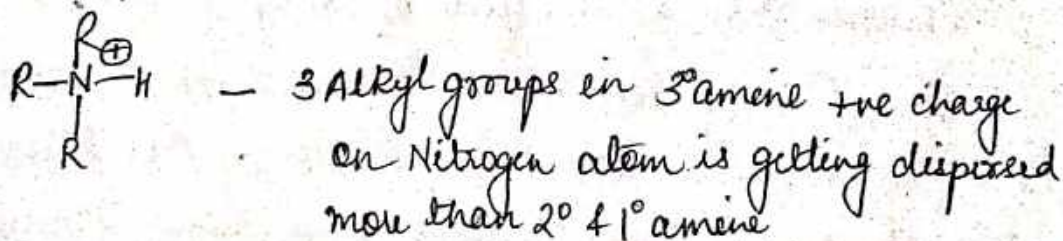 R⊕
R–N–H – 3 Alkyl groups in 3° amine +ve charge
R on Nitrogen atom is getting dispersed
more than 2° & 1° amine